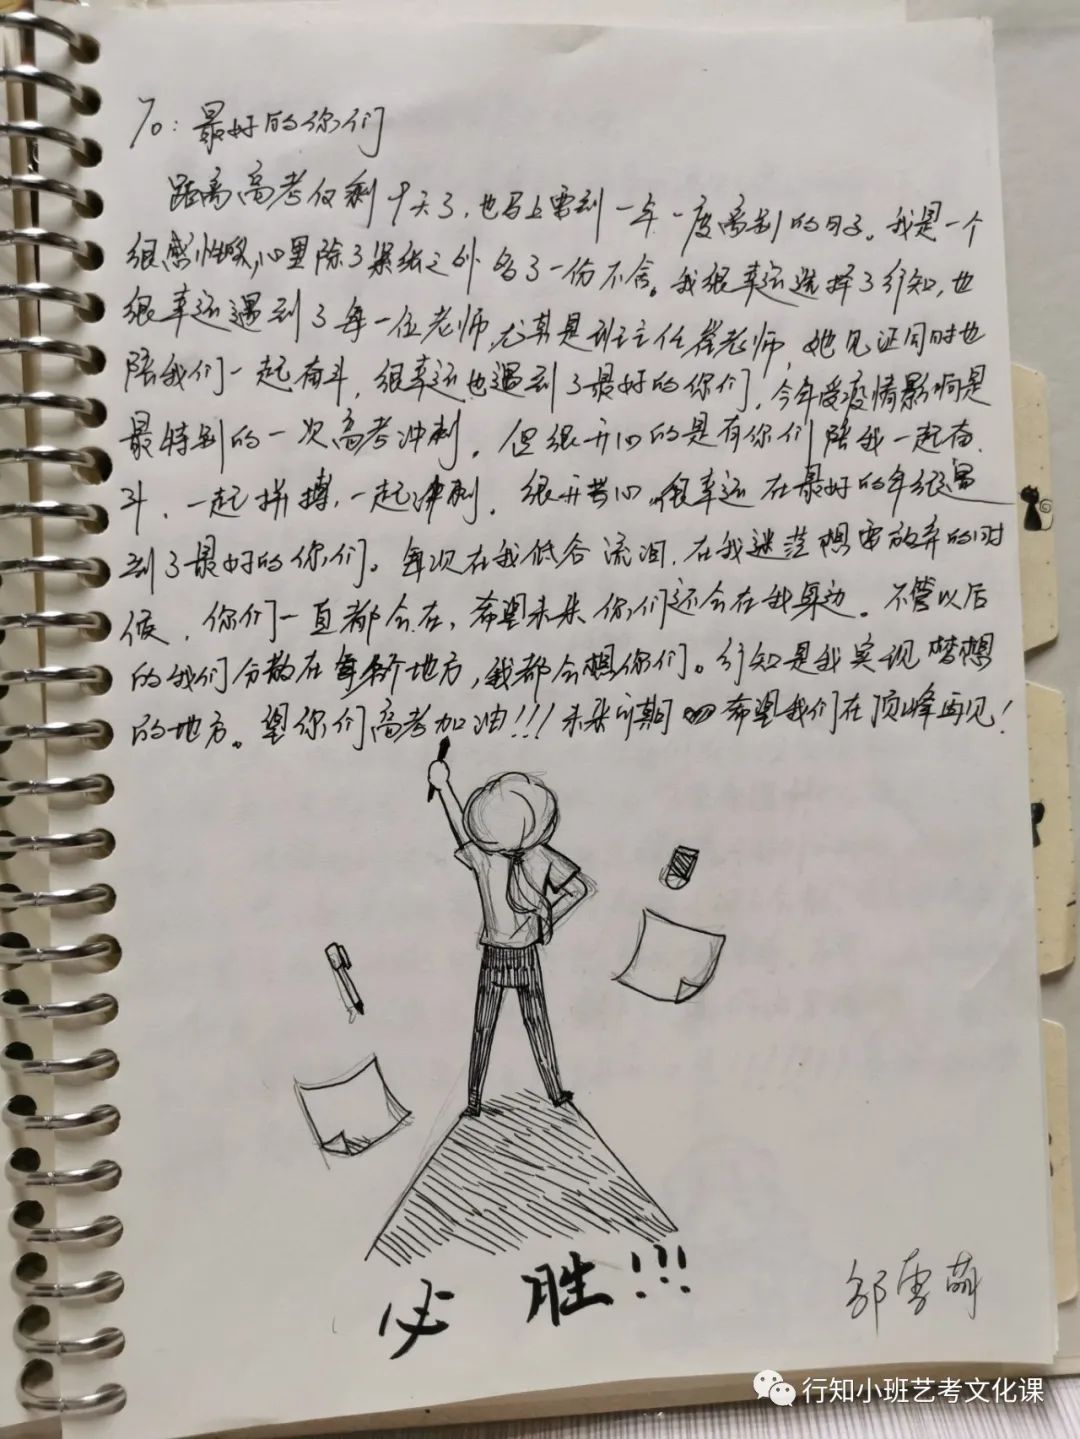 To：最好的你们
距离高考仅剩9天了，也马上要到一年一度离别的日子。我是一个
很感性的人，心里除了紧张之外多了一份不舍。我很幸运选择了行知，也
很幸运遇到了每一位老师，尤其是班主任崔老师，她见证同时也
陪我们一起奋斗，很幸运也遇到了最好的你们，今年受疫情影响是
最特别的一次高考冲刺，但很开心的是有你们陪我一起奋
斗，一起拼搏，一起冲刺，很开心，很幸运在最好的年级遇
到了最好的你们。每次在我低谷流泪，在我迷茫想要放弃的时
候，你们一直都会在，希望未来你们还会在我身边。不管以后
的我们分散在每个地方，我都会想你们。行知是我实现梦想
的地方。望你们高考加油!!!未来可期 希望我们在顶峰再见！
必胜!!!
邹雪萌
行知小班艺考文化课